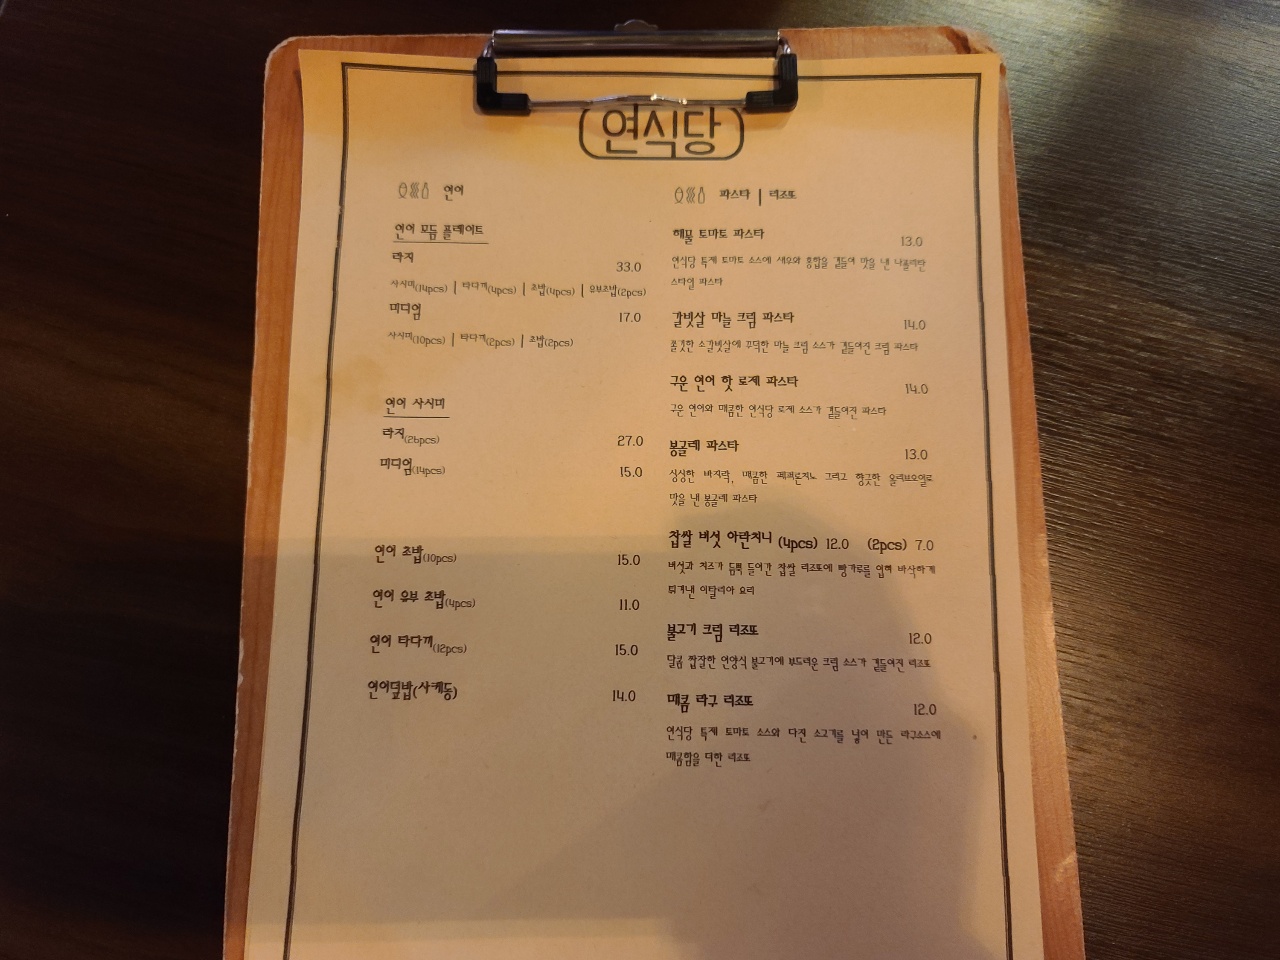 연식당
연어
연어 모듬 플레이트
라지
33.0
사시미(14pcs) | 타다끼(4pcs) | 초밥(4pcs) | 유부초밥(2pcs)
미디엄
17.0
사시미(10pcs) | 타다끼(2pcs) | 초밥(2pcs)
연어 사시미
라지(26pcs) 27.0
미디엄(14pcs) 15.0
연어 초밥(10pcs) 15.0
연어 유부 초밥(4pcs) 11.0
연어 타다끼(12pcs) 15.0
연어덮밥(사케동) 14.0
파스타 | 리조또
해물 토마토 파스타 13.0
연식당 특제 토마토 소스에 새우와 홍합을 곁들여 맛을 낸 나폴리탄
스타일 파스타
갈빗살 마늘 크림 파스타 14.0
쫄깃한 소갈빗살에 꾸덕한 마늘 크림 소스가 곁들여진 크림 파스타
구운 연어 핫 로제 파스타 14.0
구운 연어와 매콤한 연식당 로제 소스가 곁들여진 파스타
봉골레 파스타 13.0
싱싱한 바지락, 매콤한 페퍼론치노 그리고 향긋한 올리브오일로
맛을 낸 봉골레 파스타
찹쌀 버섯 아란치니 (4pcs) 12.0 (2pcs) 7.0
버섯과 치즈가 듬뿍 들어간 찹쌀 리조또에 빵가루를 입혀 바삭하게
튀겨낸 이탈리아 요리
불고기 크림 리조또 12.0
달콤 짭잘한 언양식 불고기에 부드러운 크림 소스가 곁들여진 리조또
매콤 라구 리조또 12.0
연식당 특제 토마토 소스와 다진 소고기를 넣어 만든 라구소스에
매콤함을 더한 리조또